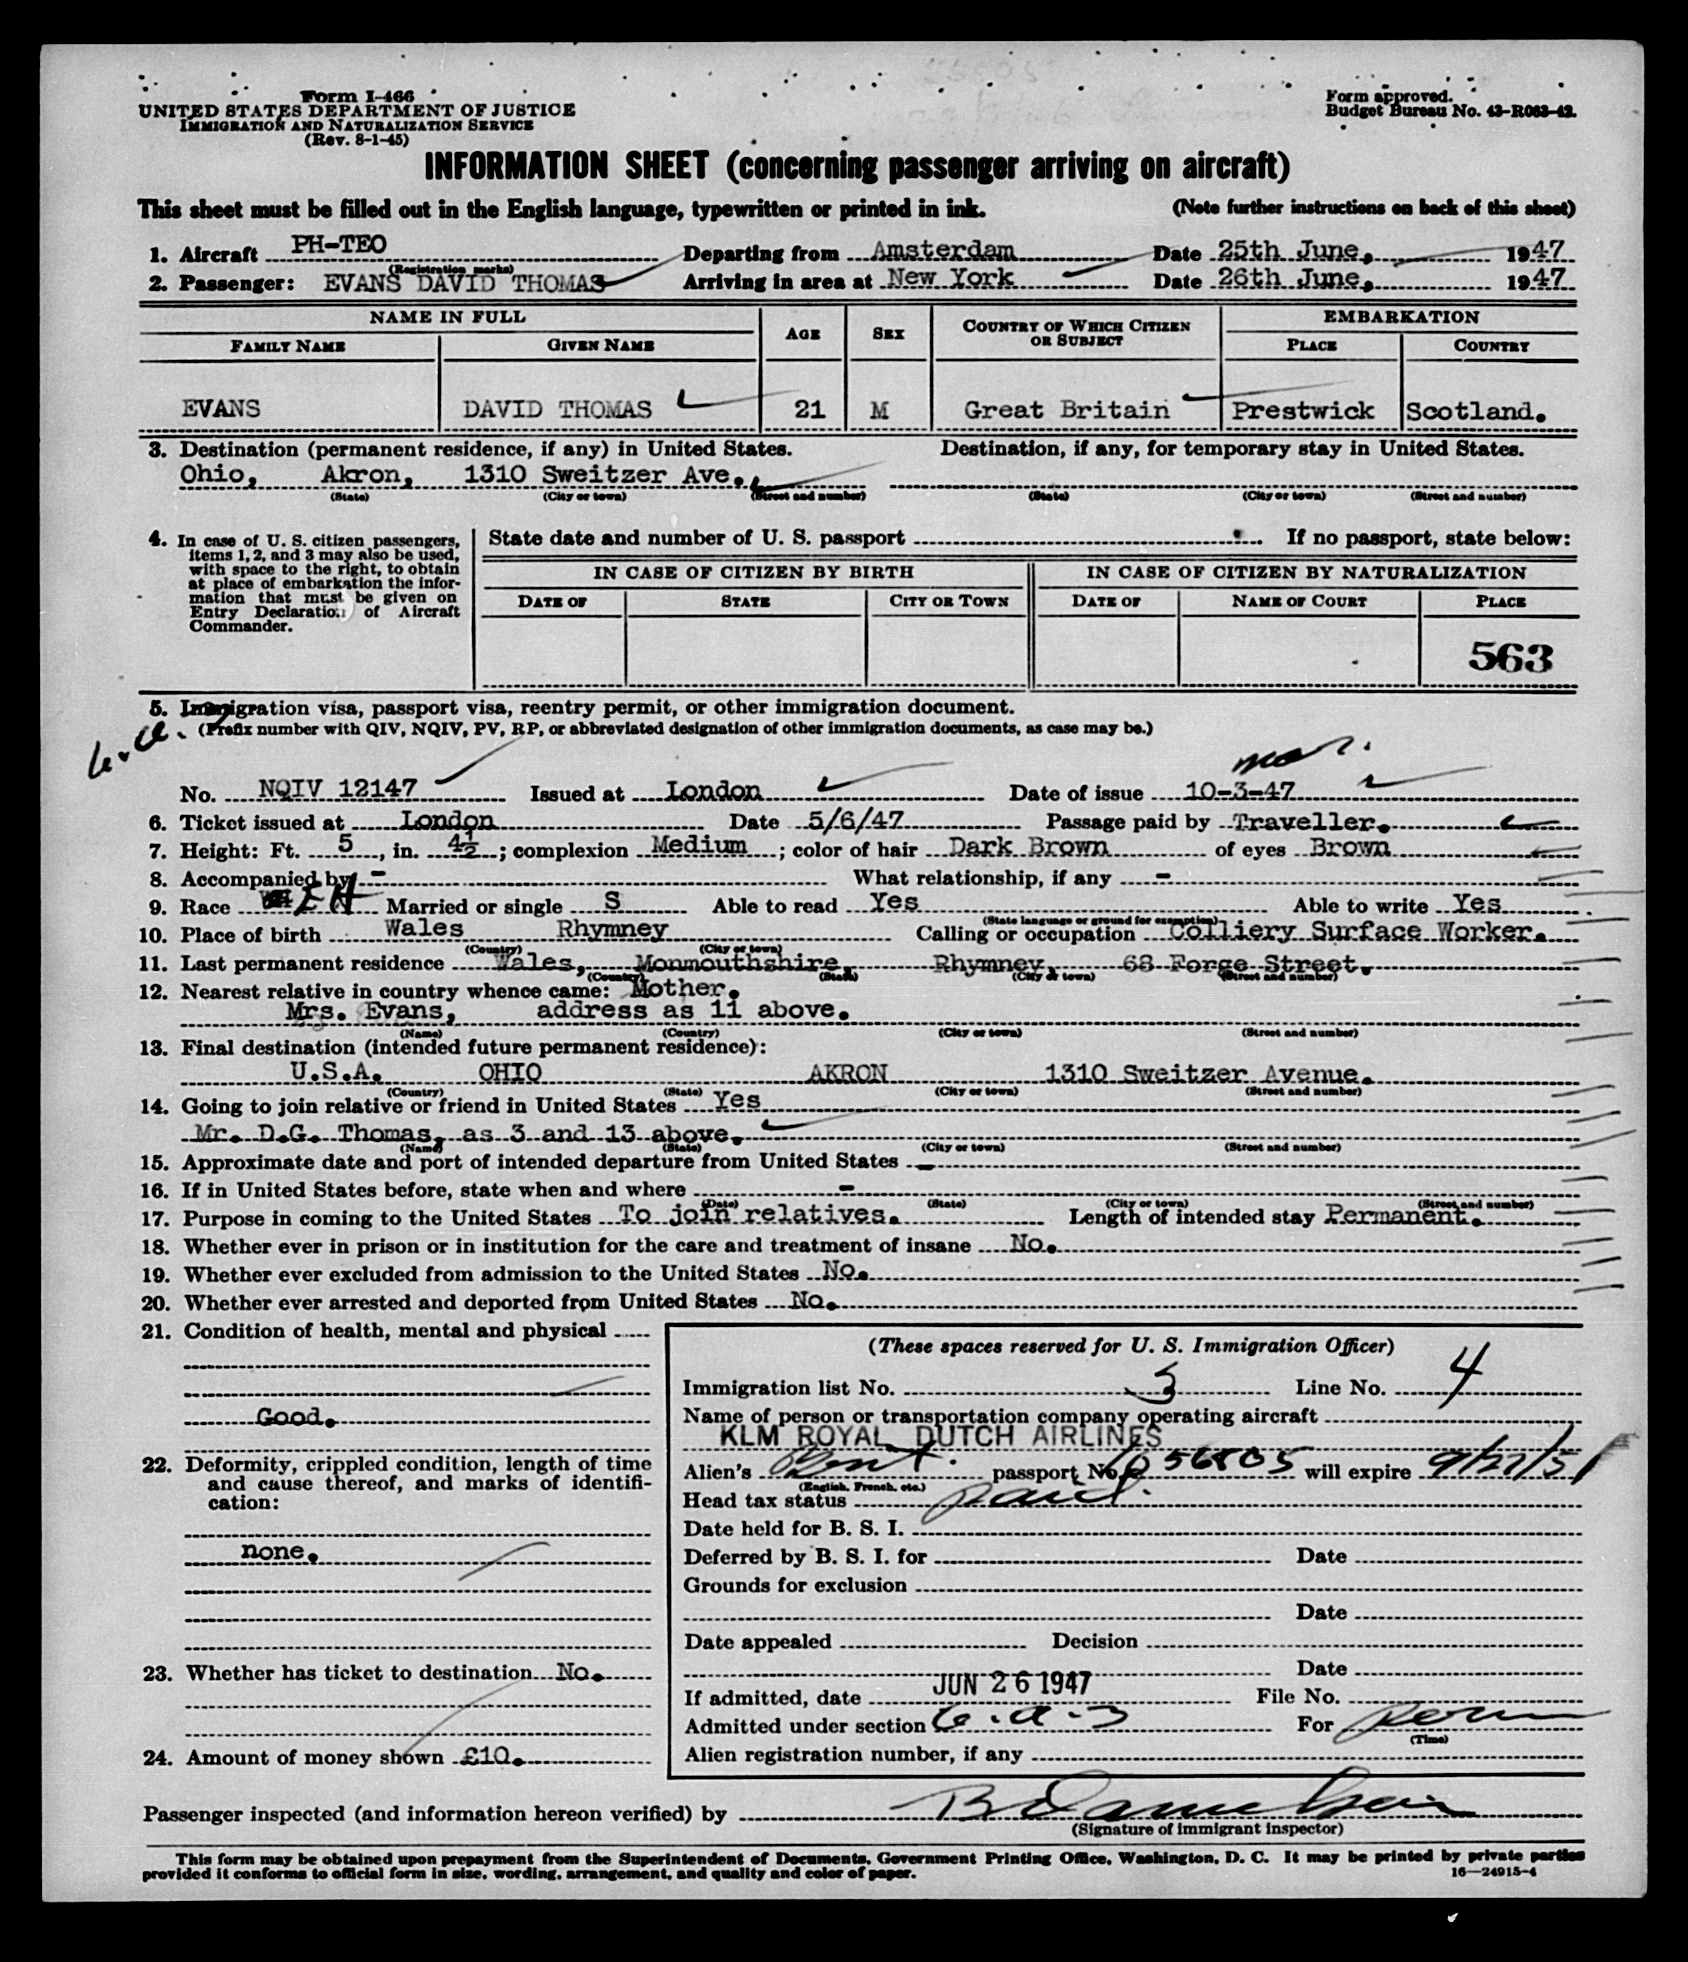 Form I-466
UNITED STATES DEPARTMENT OF JUSTICE
IMMIGRATION AND NATURALIZATION SERVICE
(Rev. 8-1-45)
Form approved.
Budget Bureau No. 43-R063-42.
INFORMATION SHEET (concerning passenger arriving on aircraft)
This sheet must be filled out in the English language, typewritten or printed in ink. (Note further instructions on back of this sheet)
1. Aircraft PH-TEO Departing from Amsterdam Date 25th June, 1947
(Registration marks)
2. Passenger: EVANS DAVID THOMAS Arriving in area at New York Date 26th June, 1947
NAME IN FULL AGE SEX COUNTRY OF WHICH CITIZEN OR SUBJECT EMBARKATION
FAMILY NAME GIVEN NAME PLACE COUNTRY
EVANS DAVID THOMAS 21 M Great Britain Prestwick Scotland.
3. Destination (permanent residence, if any) in United States. Destination, if any, for temporary stay in United States.
Ohio, Akron, 1310 Sweitzer Ave.,
(State) (City or town) (Street and number) (State) (City or town) (Street and number)
4. In case of U. S. citizen passengers, items 1, 2, and 3 may also be used, with space to the right, to obtain at place of embarkation the information that must be given on Entry Declaration of Aircraft Commander.
State date and number of U. S. passport If no passport, state below:
IN CASE OF CITIZEN BY BIRTH IN CASE OF CITIZEN BY NATURALIZATION
DATE OF STATE CITY OR TOWN DATE OF NAME OF COURT PLACE
563
5. Immigration visa, passport visa, reentry permit, or other immigration document.
(Prefix number with QIV, NQIV, PV, RP, or abbreviated designation of other immigration documents, as case may be.)
mar.
No. NQIV 12147 Issued at London Date of issue 10-3-47
6. Ticket issued at London Date 5/6/47 Passage paid by Traveller.
7. Height: Ft. 5, in. 4½; complexion Medium; color of hair Dark Brown of eyes Brown
8. Accompanied by - What relationship, if any -
9. Race Married or single S Able to read Yes Able to write Yes
(State language or ground for exemption)
10. Place of birth Wales Rhymney Calling or occupation Colliery Surface Worker.
(Country) (City or town)
11. Last permanent residence Wales, Monmouthshire, Rhymney, 68 Forge Street.
(Country) (State) (City or town) (Street and number)
12. Nearest relative in country whence came: Mother.
Mrs. Evans, address as 11 above.
(Name) (Country) (City or town) (Street and number)
13. Final destination (intended future permanent residence):
U.S.A. OHIO AKRON 1310 Sweitzer Avenue.
(Country) (State) (City or town) (Street and number)
14. Going to join relative or friend in United States Yes
Mr. D.G. Thomas, as 3 and 13 above.
(Name) (State) (City or town) (Street and number)
15. Approximate date and port of intended departure from United States -
16. If in United States before, state when and where -
(Date) (State) (City or town) (Street and number)
17. Purpose in coming to the United States To join relatives. Length of intended stay Permanent.
18. Whether ever in prison or in institution for the care and treatment of insane No.
19. Whether ever excluded from admission to the United States No.
20. Whether ever arrested and deported from United States No.
21. Condition of health, mental and physical
Good.
22. Deformity, crippled condition, length of time and cause thereof, and marks of identification:
none.
23. Whether has ticket to destination No.
24. Amount of money shown £10.
(These spaces reserved for U. S. Immigration Officer)
Immigration list No. 3 Line No. 4
Name of person or transportation company operating aircraft
KLM ROYAL DUTCH AIRLINES
Alien's passport No. 56805 will expire 9/27/51
(English, French, etc.)
Head tax status paid.
Date held for B. S. I.
Deferred by B. S. I. for Date
Grounds for exclusion
Date
Date appealed Decision
Date
If admitted, date JUN 26 1947 File No.
Admitted under section 6-a-3 For Perm
(Time)
Alien registration number, if any
Passenger inspected (and information hereon verified) by
(Signature of immigrant inspector)
This form may be obtained upon prepayment from the Superintendent of Documents, Government Printing Office, Washington, D. C. It may be printed by private parties
provided it conforms to official form in size, wording, arrangement, and quality and color of paper. 16—24915-4